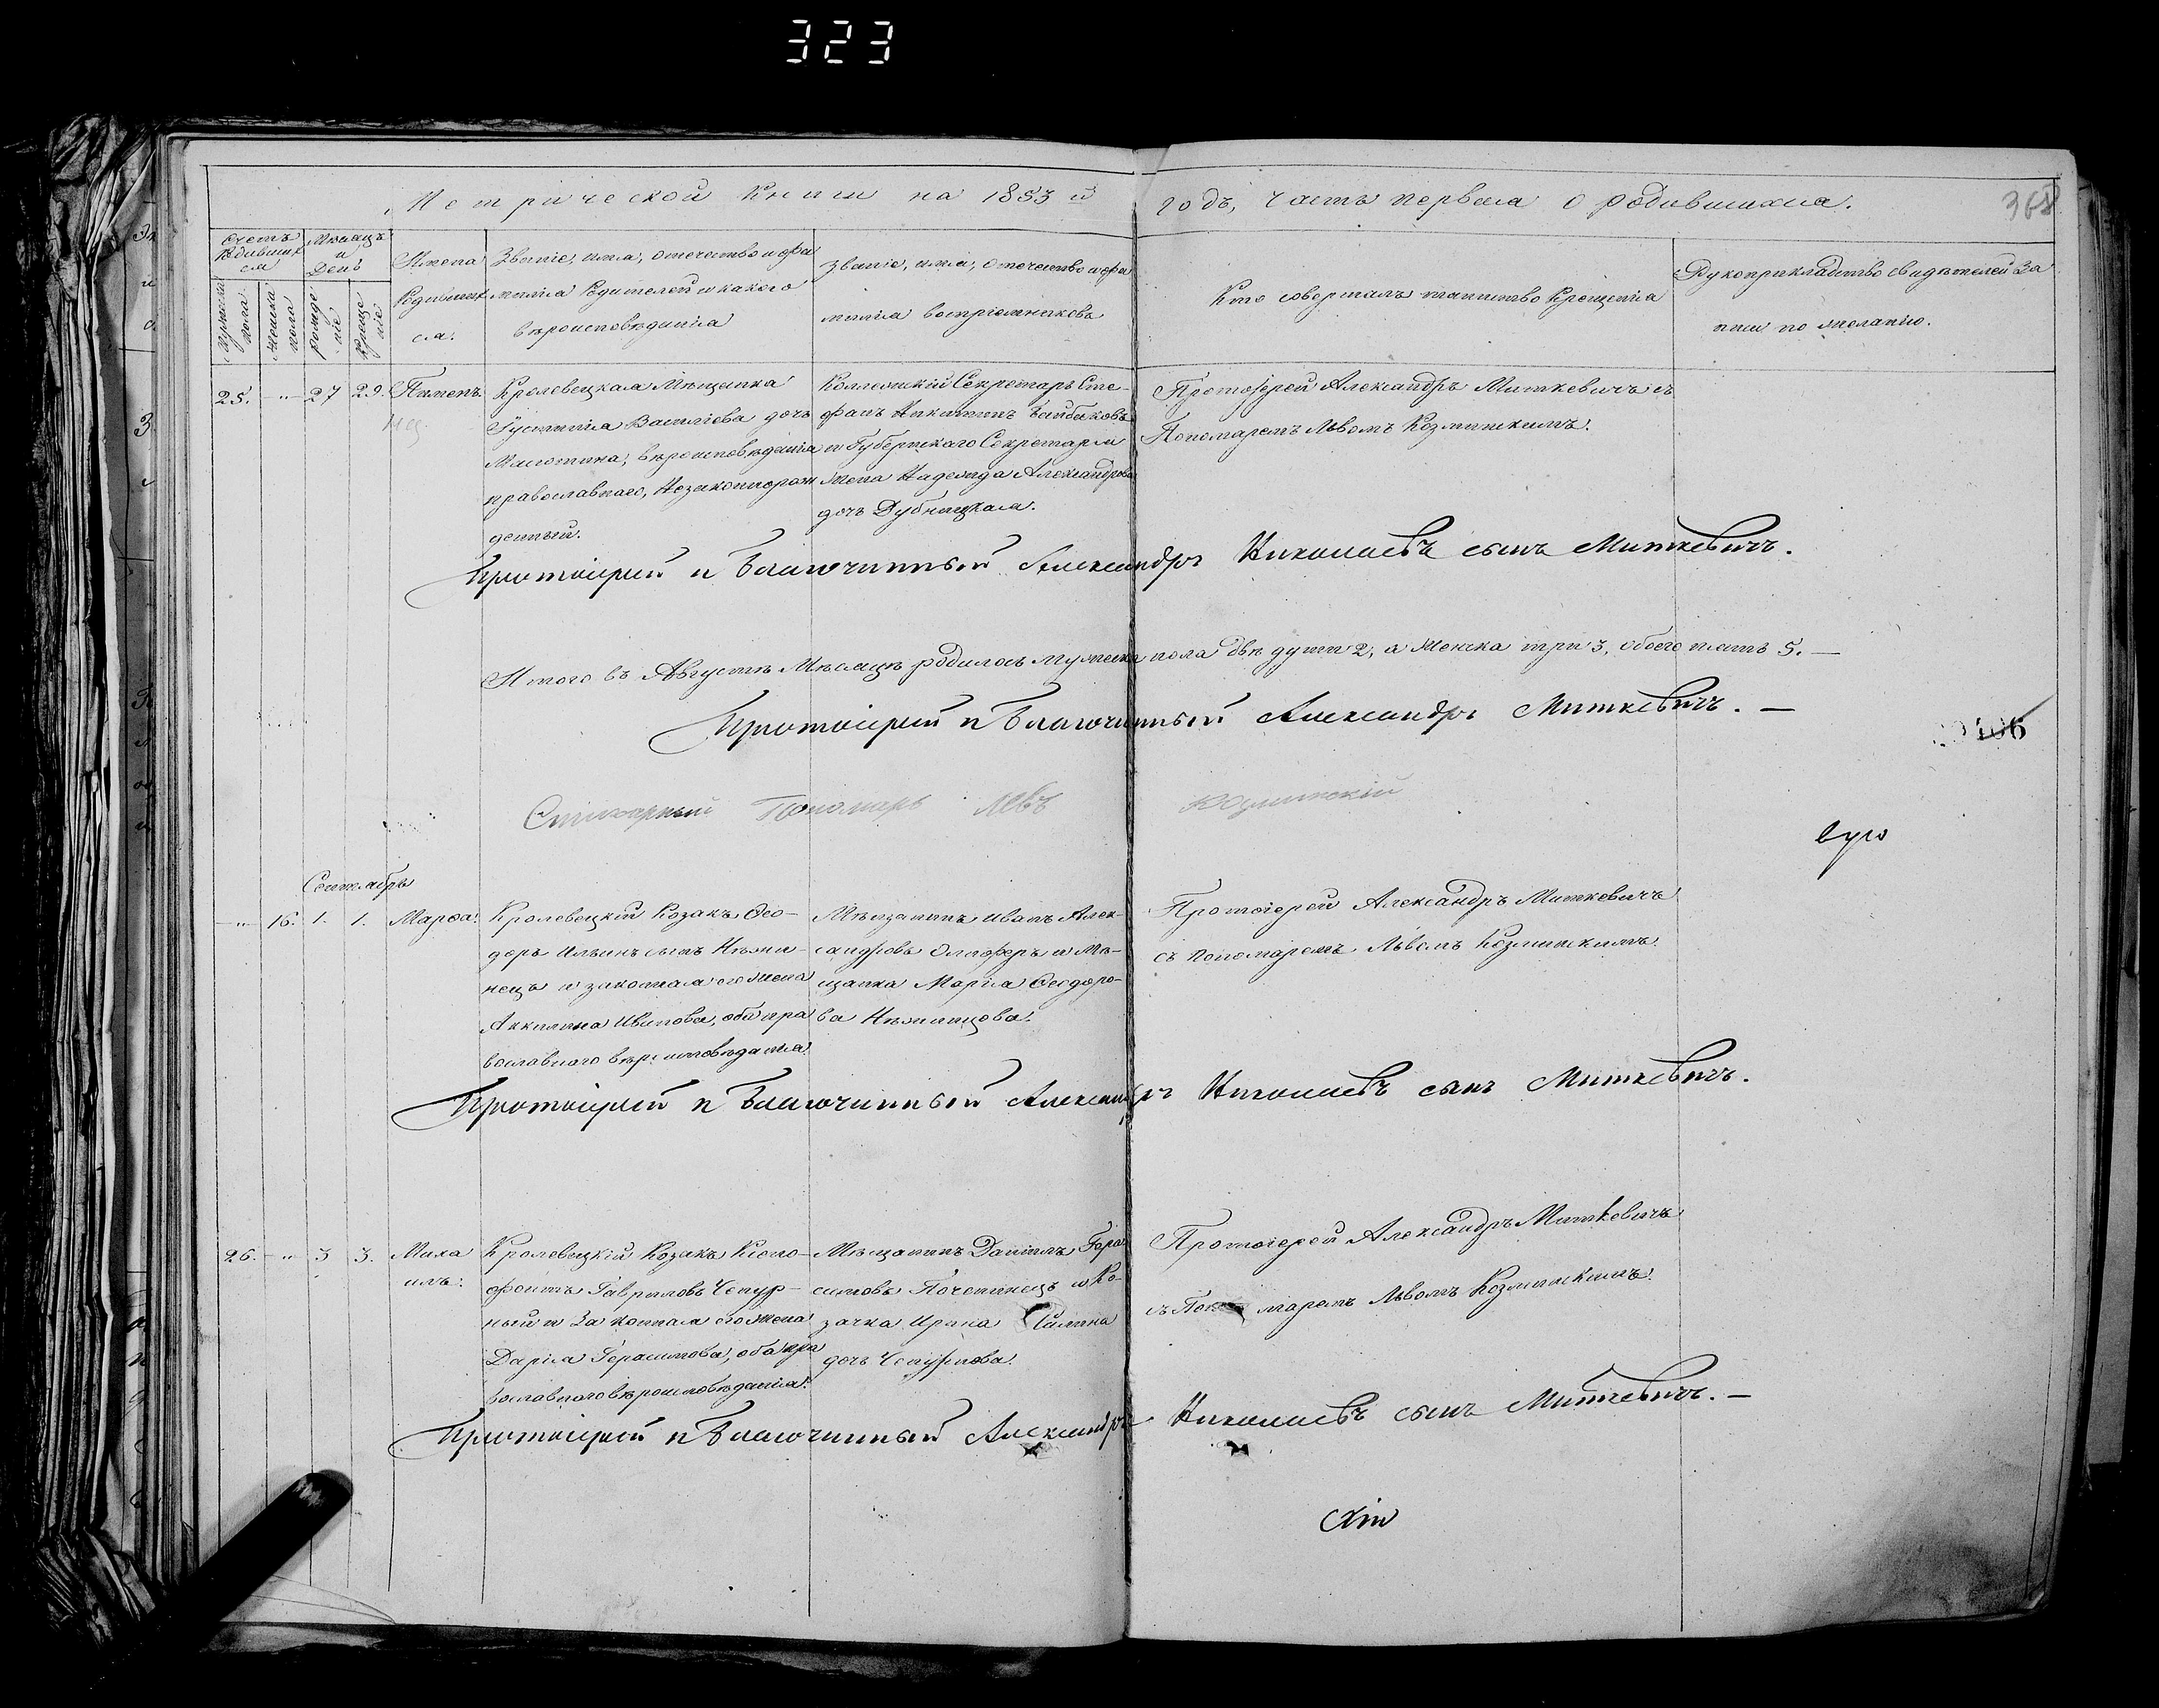 323
Метрической Книги на 1853й годъ, Часть первая о родившихся.
368
Счетъ родившихся
Мѣсяцъ и День
Имена родившихся.
Званіе, имя, отечество и фамилія Родителей и какого вѣроисповѣданія
Званіе, имя, отечество и фамилія воспріемниковъ
Кто совершалъ таинство Крещенія
Рукоприкладство свидѣтелей записи по желанію.
Мужеска пола
Женска пола
Рожденіе
Крещеніе
25. " 27 29. Пименъ.
Кролевецкая Мѣщанка
Іустинія Василіева дочь
вѣроисповѣданія
православнаго, Незаконнорож
денный.
Коллежскій Секретарь Сте-
фанъ Никитинъ
и Губернскаго Секретаря
жена Надежда Александрова
дочь Дубницкая.
Протоіерей Александръ Миткевичъ съ
Пономаремъ Львомъ Козминскимъ.
Протоіерей и Благочинный Александръ Николаевъ сынъ Миткевичъ.
Итого въ Августѣ Мѣсяцѣ родилось мужеска пола двѣ души 2, а Женска три 3, обоего пять 5. —
Протоіерей и Благочинный Александръ Миткевичъ. —
106
Стихарный Пономарь Левъ Козминскій
Сентябрь
" 16. 1. 1. Марѳа.
Кролевецкій Козакъ Ѳео-
доръ Ильинъ сынъ Нѣжи-
нецъ и законная его жена
Аккилина Иванова, оба пра
вославнаго вѣроисповѣданія.
Мѣщанинъ Иванъ Алек-
сандровъ Олиферъ и Мѣ-
щанка Марія Ѳеодоро-
ва
Протоіерей Александръ Миткевичъ
съ Пономаремъ Львомъ Козминскимъ.
Протоіерей и Благочинный Александръ Николаевъ сынъ Миткевичъ.
26. " 3 3. Миха
илъ.
Кролевецкій Козакъ Ксено-
фонтъ Гавриловъ Чепур-
ный и Законная его жена
Дарія Герасимова, оба пра
вославнаго вѣроисповѣданія.
Мѣщанинъ Даніилъ Гера
симовъ и Ко-
зачка Ирина
дочь Чепурнова.
Протоіерей Александръ Миткевичъ
съ Пономаремъ Львомъ Козминскимъ.
Протоіерей и Благочинный Александръ Николаевъ сынъ Миткевичъ. —